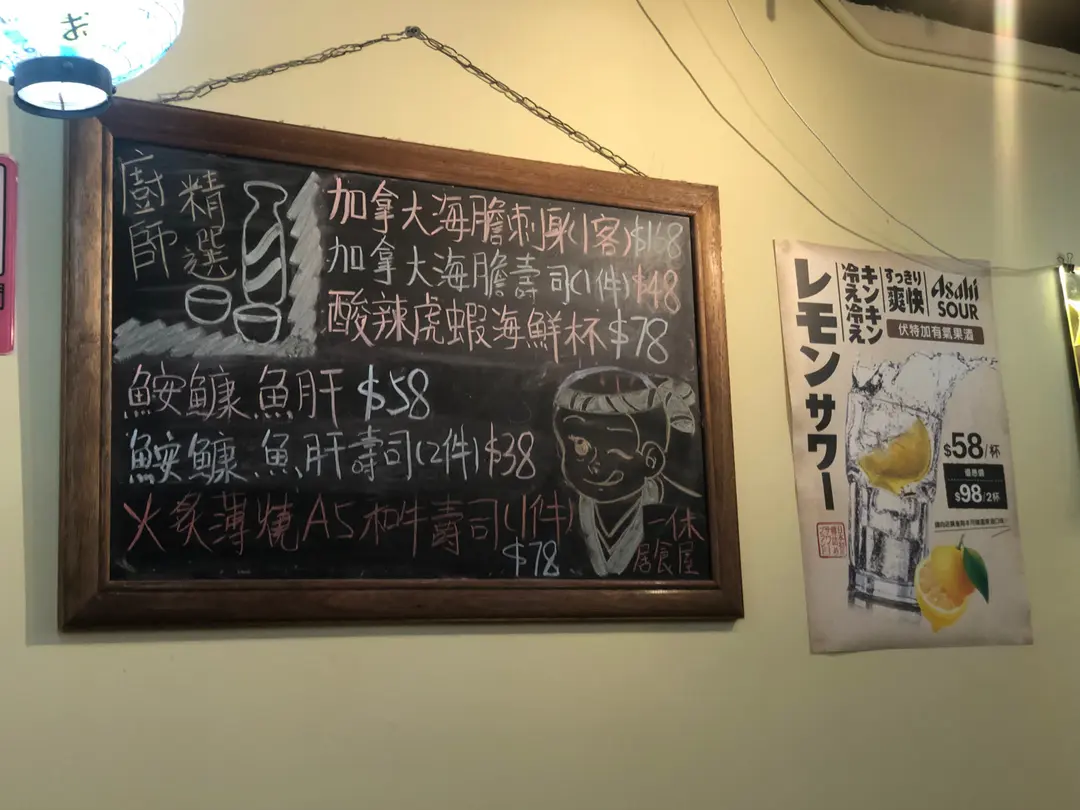 お
廚師
精選
加拿大海膽刺身(1客)$168
加拿大海膽壽司(1件)$48
酸辣虎蝦海鮮杯$78
鮟鱇魚肝 $58
鮟鱇魚肝壽司(2件)$38
火炙薄燒A5和牛壽司(1件)
$78
一休
居食屋
レモンサワー
キンキン
冷え冷え
すっきり
爽快
Asahi
SOUR
伏特加有氣果酒
$58/杯
優惠價
$98/2杯